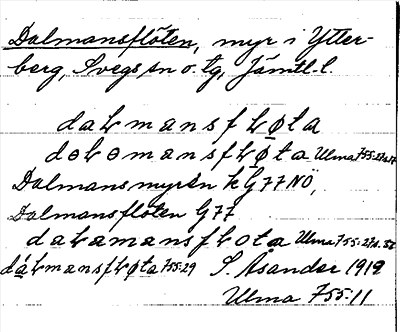 Dalmansflöten, myr i Ytter-
berg, Svegs sn o. tg, Jämtl. l.
daƚmansfƚo̱ta
dɵƚɵmansfƚo̱ta Ulma 755:27
Dalmansmyrån k G77 NÖ,
Dalmansflöten G77
daƚamansfƚota Ulma 755:27 s. 52
daƚmansfƚøta 755:29 S. Åsander 1919
Ulma 755:11